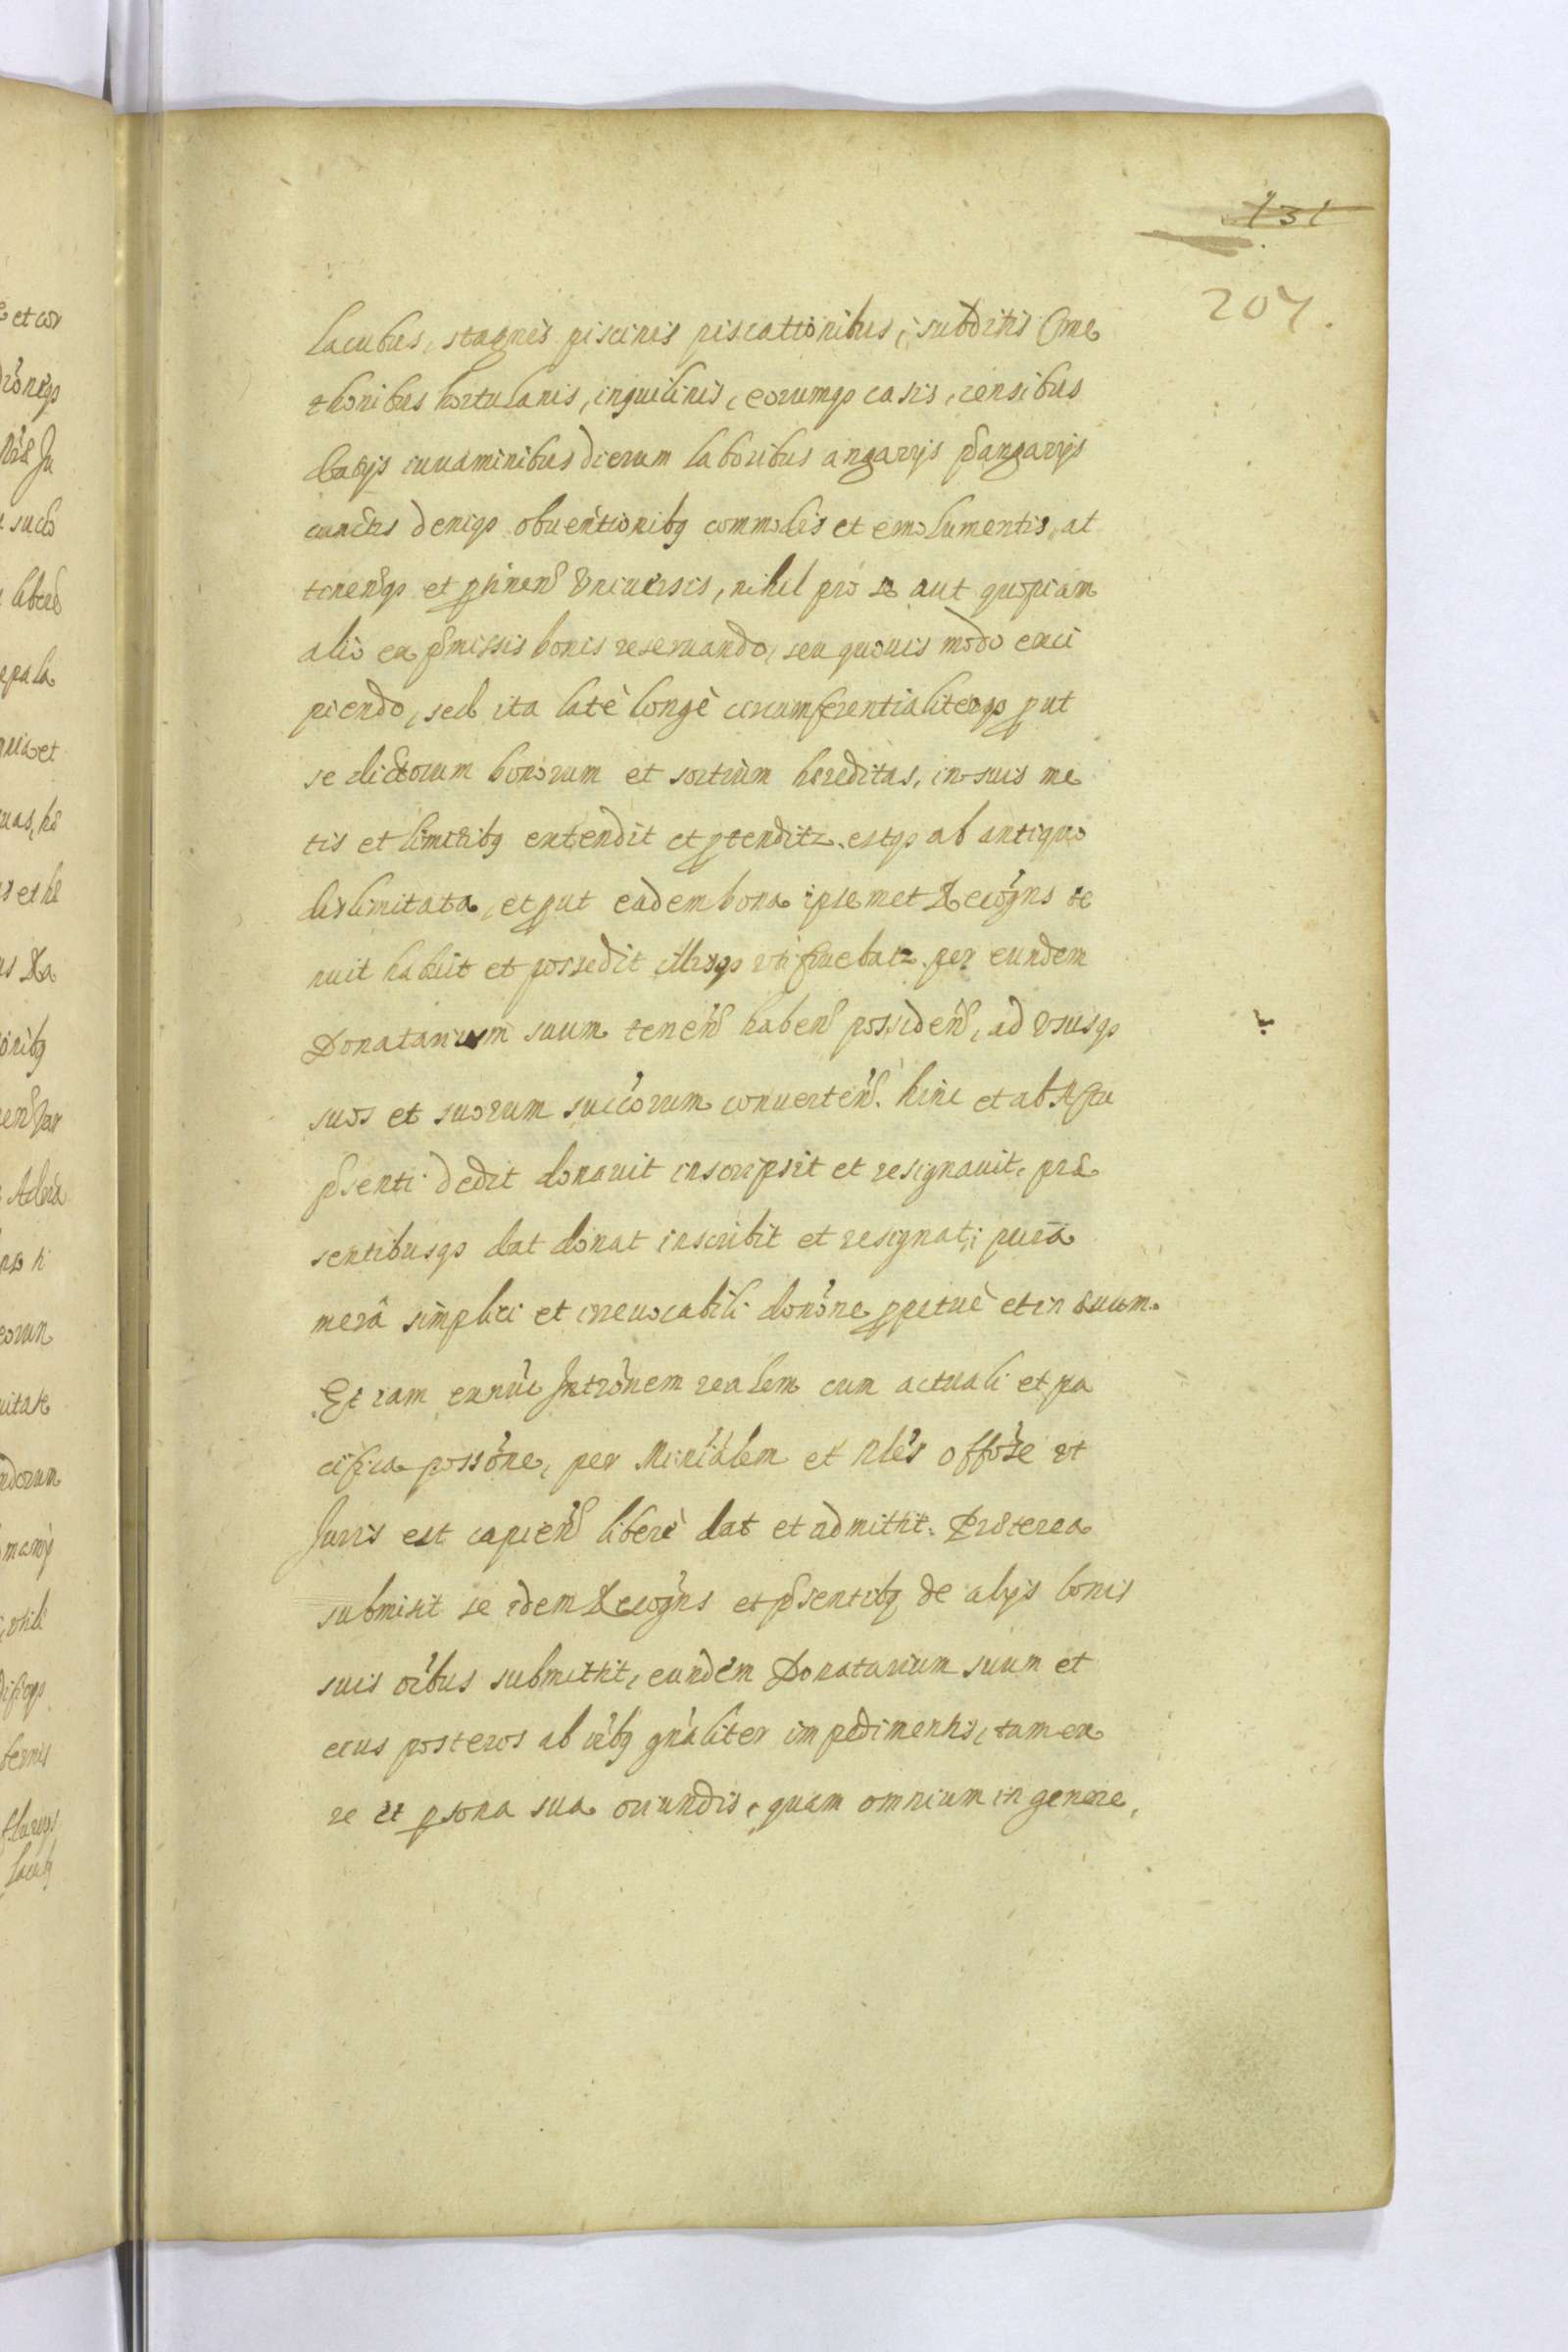 131
207.
lacubus, stagnis piscinis piscationibus, subditis Cme
thonibus hortulanis, inquilinis, eorumq casis, censibus
datijs iuvaminibus dierum laboribus angarijs pangarijs
cunctis deniq obventionibq commodis et emolumentis, at
tinenq et ptinen Universis, nihil pro se aut quopiam
alio ex pmissis bonis reservando, seu quovis modo exci
piendo, sed ita latè longè circumferentialiterq put
se dictorum bonorum et sortium hereditas, in suis me
tis et limitibq extendit et ptenditz. estq ab antiquo
dislimitata, et put eadem bona ipsemet Recogns te
nuit habuit et possedit illisq uti fruebatz. per eundem
Donatarium suum tenen haben possiden, ad Ususq
suos et suorum succorum converten. hinc et ab Actu
psenti dedit donavit inscripsit et resignavit, præ
sentibusq dat donat inscribit et resignat, purâ
merâ simplici et irrevocabili donone ppetuè et in ævum.
Et iam exnunc Intronem realem cum actuali et pa
cifica possone, per Minialem et Nles offose ut
Juris est capien liberè dat et admittit. Præterea
submisit se idem Recogns et psentibq de alijs bonis
suis oibus submittit, eundem Donatarium suum et
eius posteros ab oibq gnaliter impedimentis, tam ex
re et psona sua oriundis, quam omnium in genere,